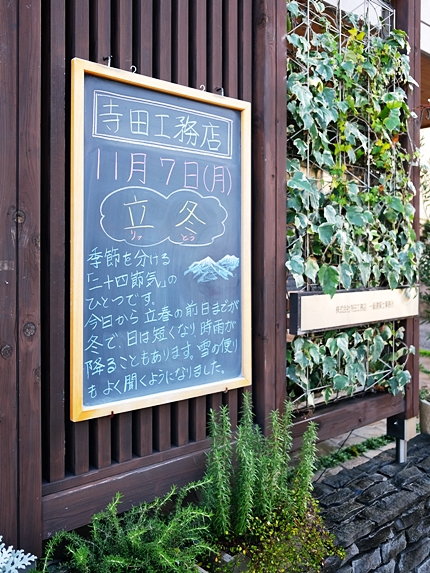 寺田工務店
11月7日(月)
立冬
りっとう
季節を分ける
「二十四節気」の
ひとつです。
今日から立春の前日までが
冬で、日は短くなり時雨が
降ることもあります。雪の便り
もよく聞くようになりました。
株式会社寺田工務店 一級建築士事務所